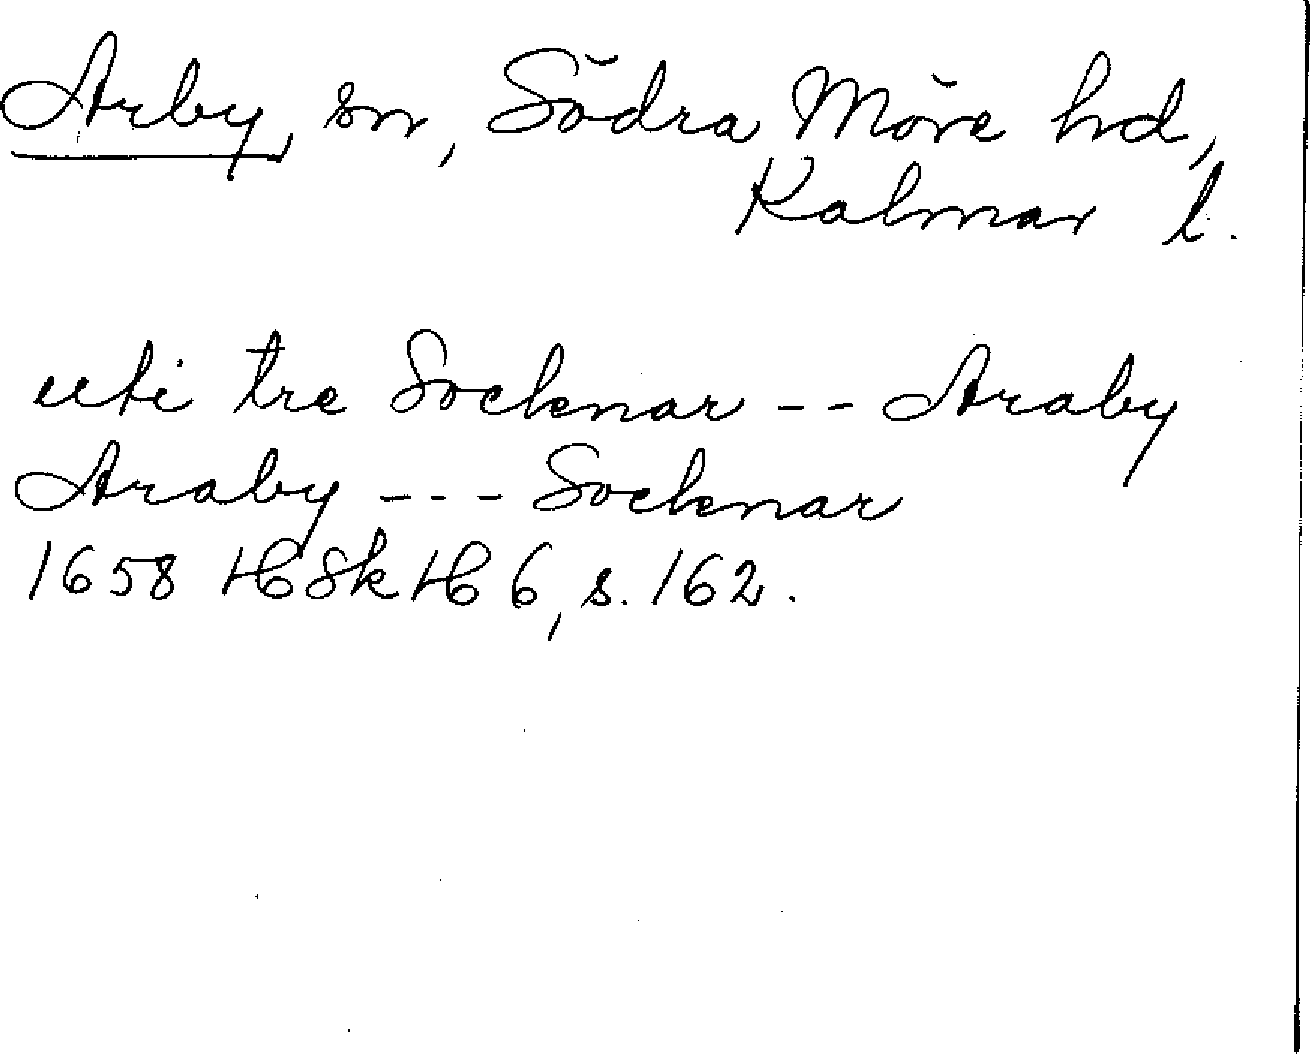 Arby, sn, Södra Möre hd,
Kalmar l.
uti tre Socknar -- Araby
Araby --- Socknar
1658 HSkH 6, s. 162.